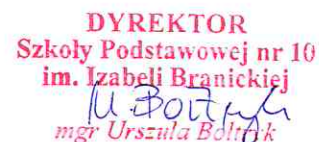 DYREKTOR
Szkoły Podstawowej nr 10
im. Izabeli Branickiej
mgr Urszula Bołtryk